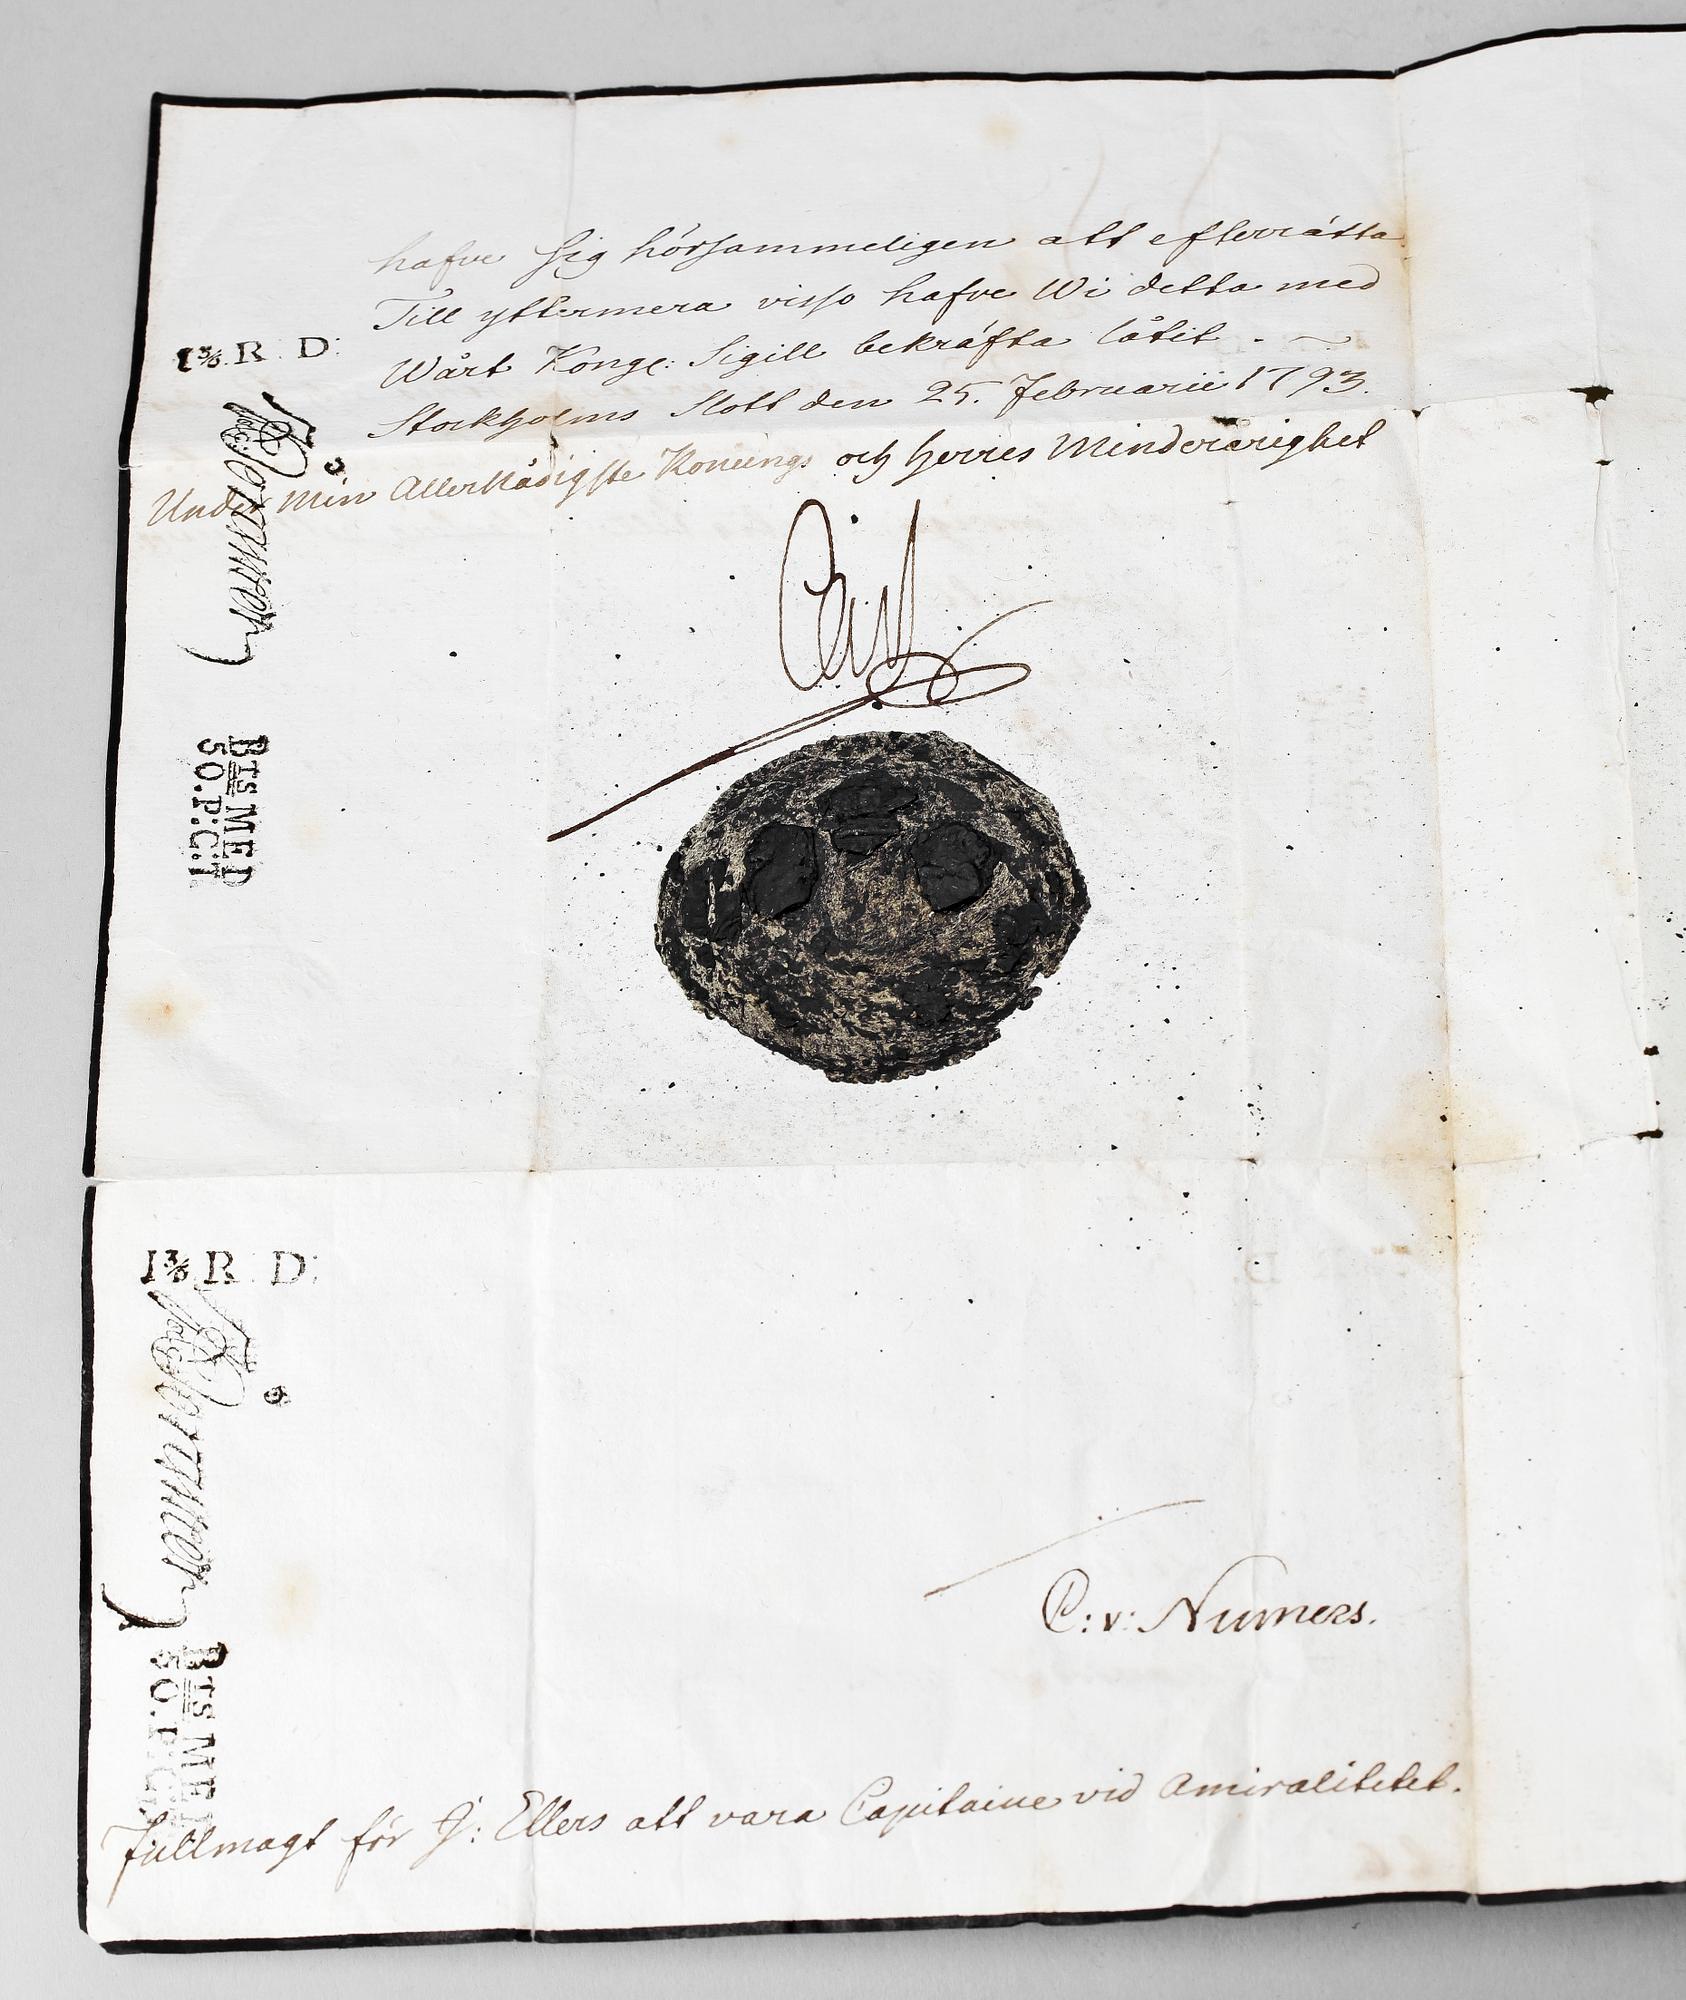 hafve sig hörsammeligen att efterrätta
Till yttermera visso hafve Wi detta med
Wårt Kongl: Sigill bekräfta låtit.
Stockholms Slott den 25. Februarii 1793.
Under Min Allernådigste Konungs och Herres Minderårighet
1 3/6. R D:
Carl
BTS MED
50.P:C:T
1 3/6 R D:
C: v: Numers.
BTS ME
50.P:C:
Fullmagt för G: Ellers att vara Capitaine vid Amiralitetet.